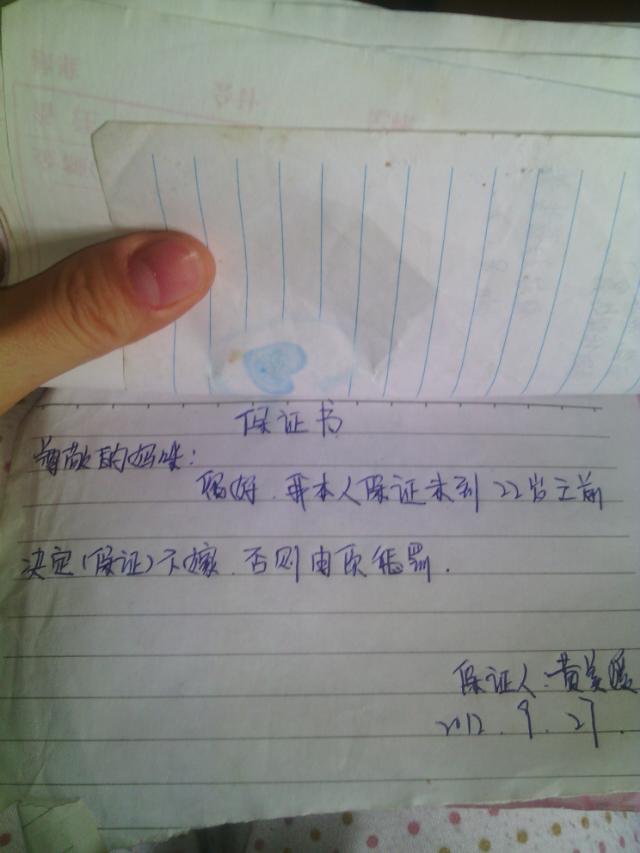 保证书
尊敬的妈咪:
您好.我本人保证未到22岁之前
决定(保证)不嫁.否则由 惩罚.
保证人:黄美
2012.9.27